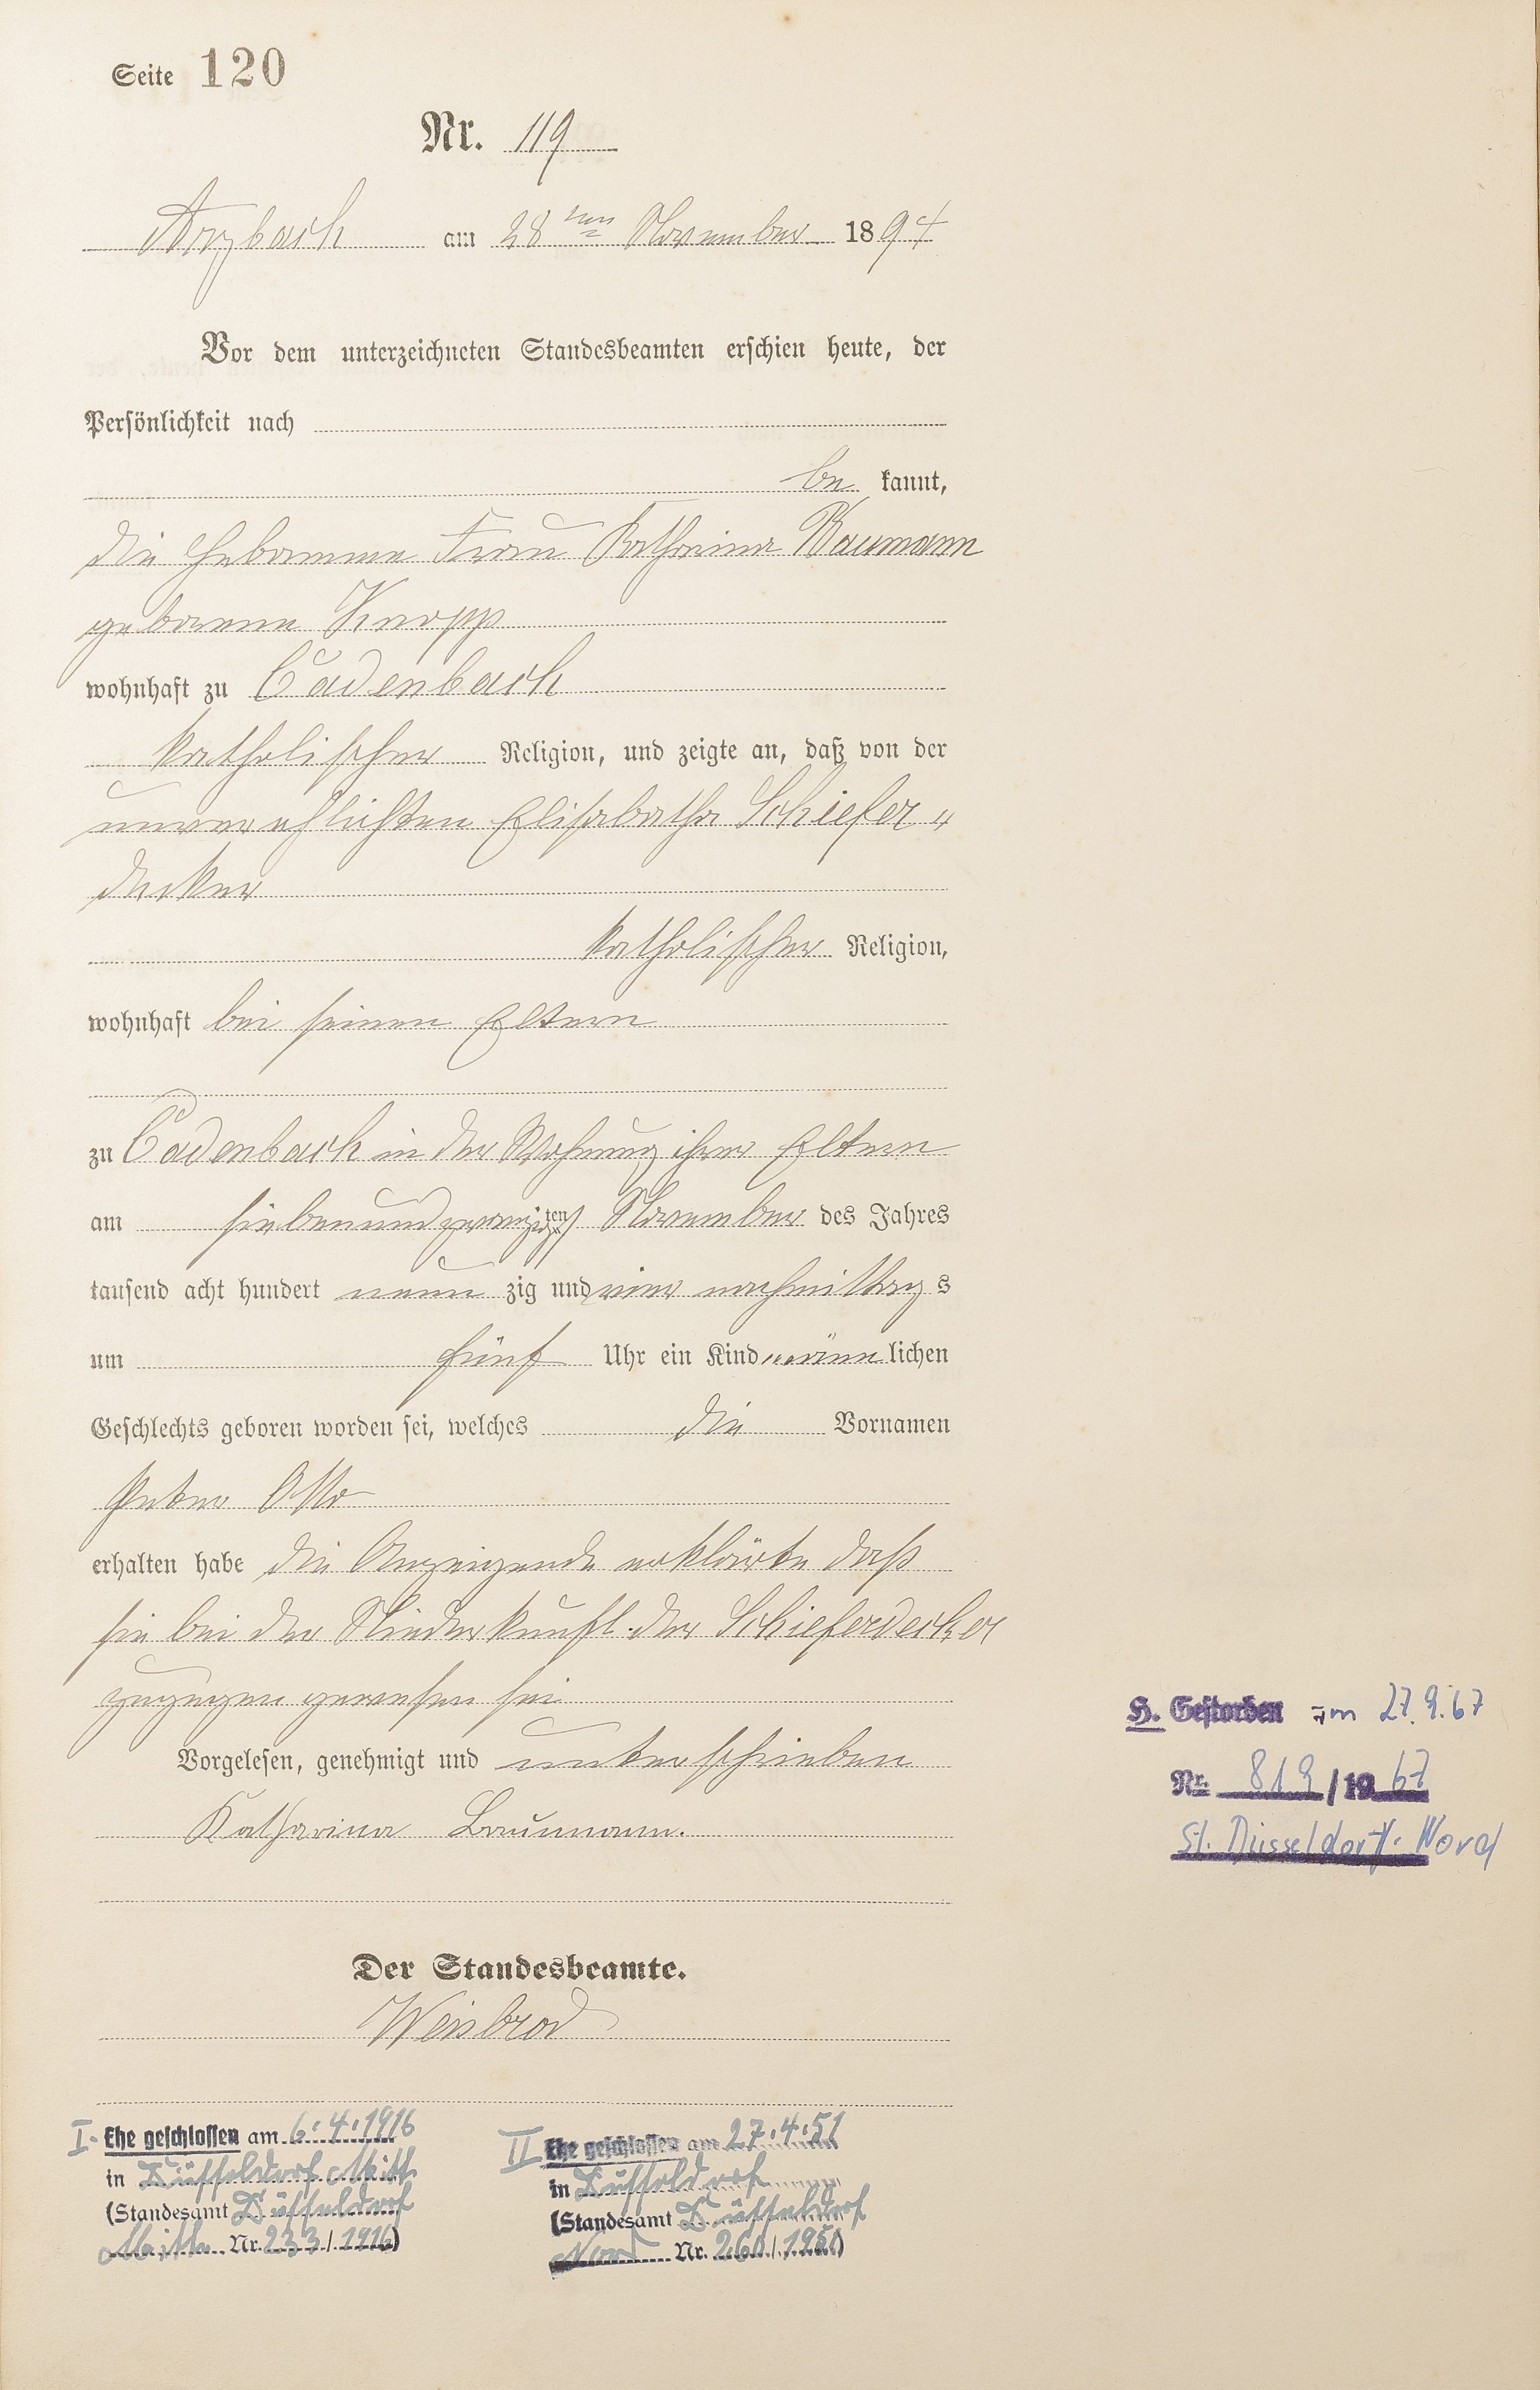 Seite 120
Nr. 119
Arzbach am 28ten November 1894
Vor dem unterzeichneten Standesbeamten erschien heute, der
Persönlichkeit nach
be kannt,
die Hebamme Frau Katharina Baumann
geborene Knopp
wohnhaft zu Cadenbach
katholischer Religion, und zeigte an, daß von der
unverehlichten Elisabetha Schiefer„
decker
katholischer Religion,
wohnhaft bei seinen Eltern
zu Cadenbach in der Wohnung ihrer Eltern
am siebenundzwanzigsten November des Jahres
tausend acht hundert neun zig und vier nachmittags
um fünf Uhr ein Kind männ lichen
Geschlechts geboren worden sei, welches die Vornamen
Peter Otto
erhalten habe die Anzeigende erklärte daß
sie bei der Niederkunft der Schieferdecker
zugegen gewesen sei
Vorgelesen, genehmigt und unterschrieben
Katharina Baumann.
Der Standesbeamte.
Weisbrod
I. Ehe geschlossen am 6.4.1916
in Düsseldorf Mitte
(Standesamt Düsseldorf
Mitte Nr. 233/1916)
II Ehe geschlossen am 27.4.51
in Düsseldorf
(Standesamt Düsseldorf
Nord Nr. 260/1951)
H. Gestorben am 27.9.67
Nr. 819/1967
St. Düsseldorf-Nord